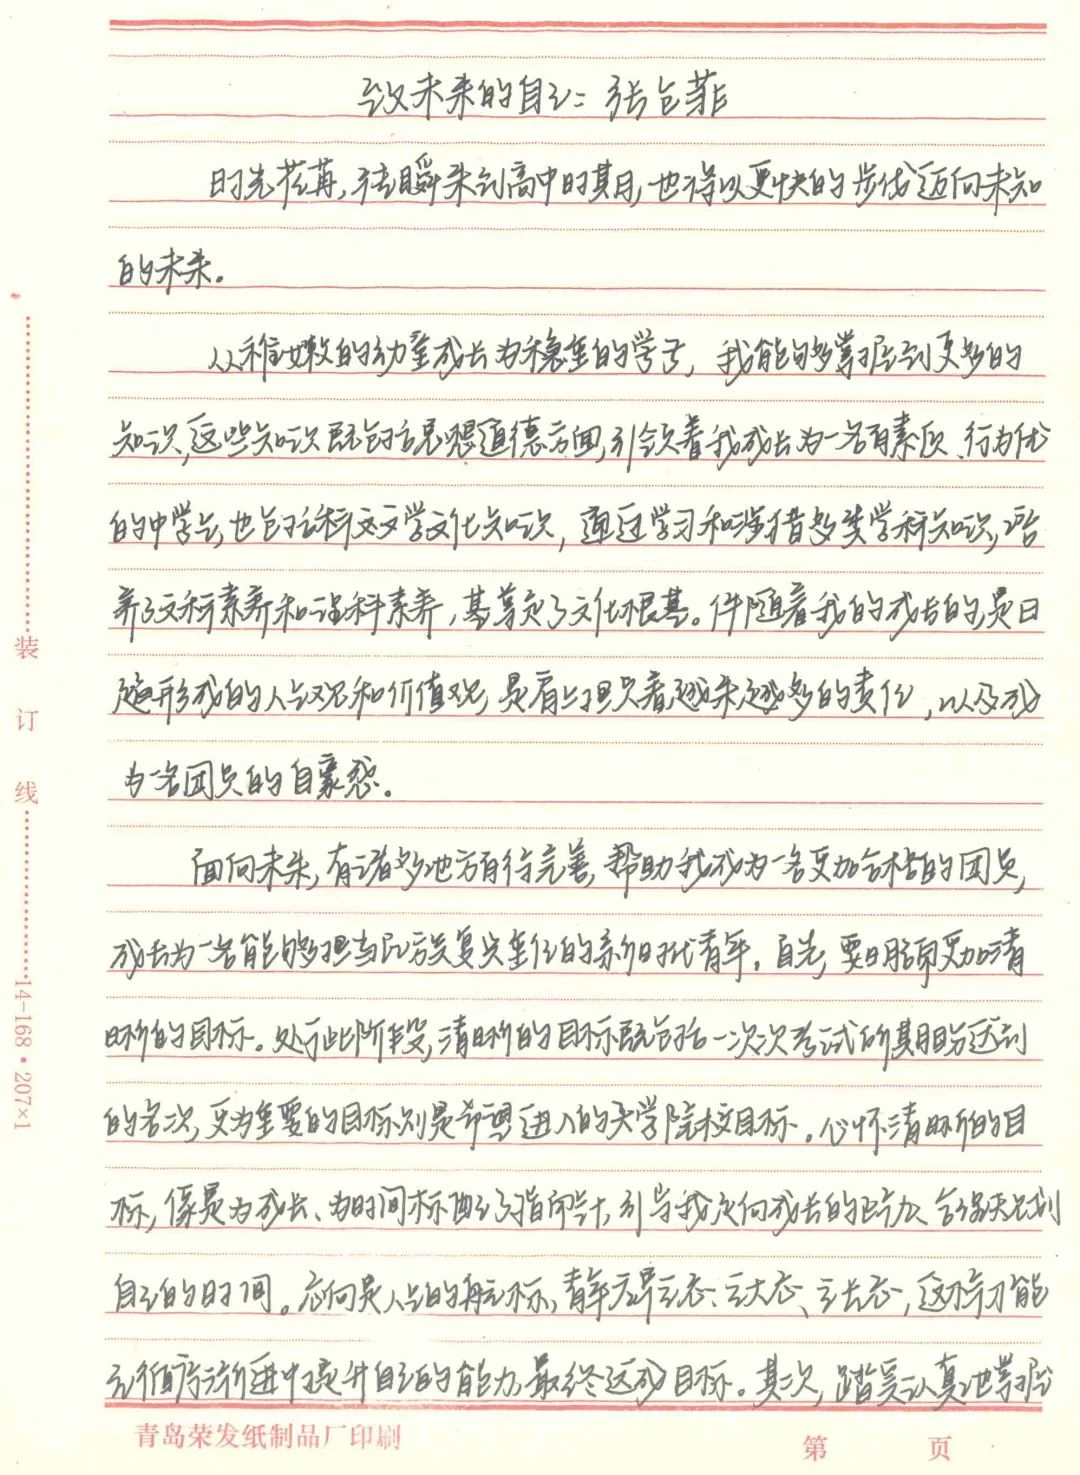 致未来的自己：张白菲
时光荏苒，转瞬来到高中时期，也将以更快的步伐迈向未知
的未来。
从稚嫩的幼童成长为稳重的学子，我能够掌握到更多的
知识，这些知识既包括思想道德方面，引领着我成长为一名有素质、行为优
的中学生，也包括科文文学文化知识，通过学习和涉猎多类学科知识，培
养了文科素养和理科素养，基奠定了文化根基。伴随着我的成长的，是日
趋形成的人生观和价值观，是肩上担负着越来越多的责任，以及成
为一名团员的自豪感。
面向未来，有诸多地方有待完善，帮助我成为一名更加合格的团员，
成长为一名能够担当民族复兴重任的新时代青年。首先，要明确更加清
晰的目标。处于此阶段，清晰的目标既包括一次次考试所期盼达到
的名次，更为重要的目标则是希望进入的大学院校目标。心怀清晰的目
标，像是为成长、为时间标配了指南针，引导我定向成长的路线、合理规划
自己的时间。志向是人生的航标，青年应早立志、立大志、立长志，这样才能
在循序渐进中提升自己的能力，最终达成目标。其次，踏实认真地掌握
装
订
线
14-168·207×1
青岛荣发纸制品厂印刷
第 页